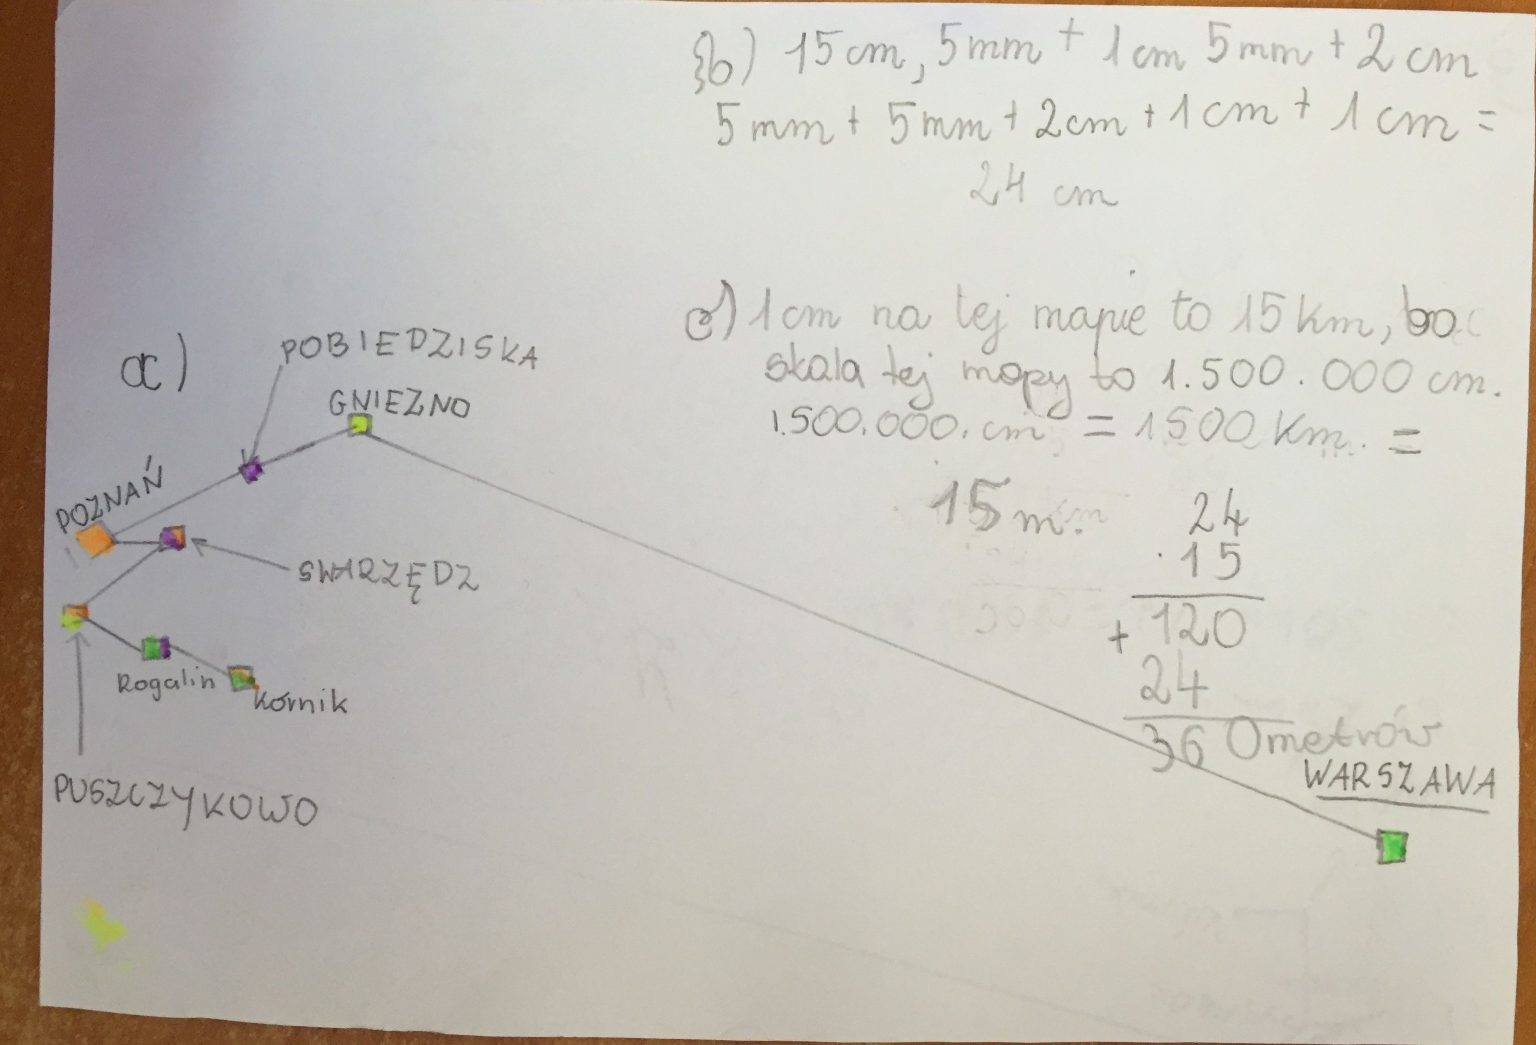 b) 15 cm, 5 mm + 1 cm 5 mm + 2 cm
5 mm + 5 mm + 2 cm + 1 cm + 1 cm =
24 cm
c) 1 cm na tej mapie to 15 km, bo
skala tej mapy to 1.500.000 cm.
1.500.000. cm = 1500 km. =
15 m.
24
· 15
120
+
24
360 metrów
a)
POBIEDZISKA
GNIEZNO
POZNAŃ
SWARZĘDZ
Rogalin
Kórnik
PUSZCZYKOWO
WARSZAWA